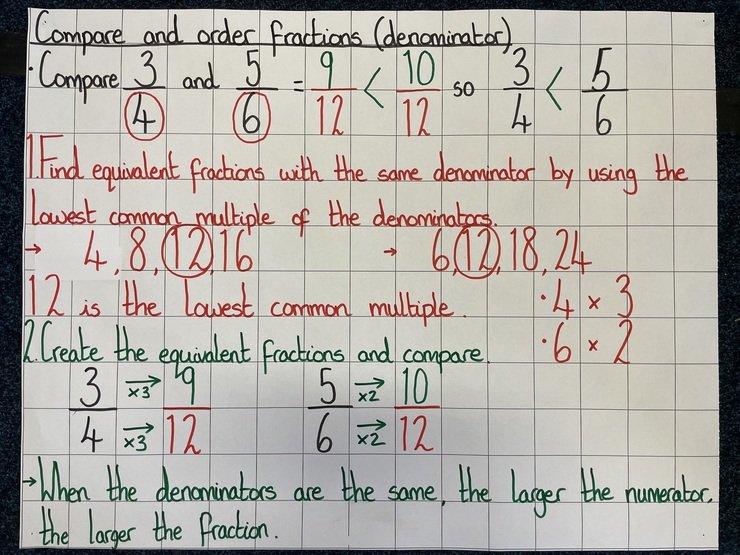 Compare and order fractions (denominator)
· Compare 3/4 and 5/6 = 9/12 < 10/12 so 3/4 < 5/6
1. Find equivalent fractions with the same denominator by using the
lowest common multiple of the denominators.
→ 4, 8, 12, 16 → 6, 12, 18, 24
12 is the lowest common multiple. · 4 × 3
· 6 × 2
2. Create the equivalent fractions and compare.
3 ×3→ 9 5 ×2→ 10
4 ×3→ 12 6 ×2→ 12
→ When the denominators are the same, the larger the numerator,
the larger the fraction.